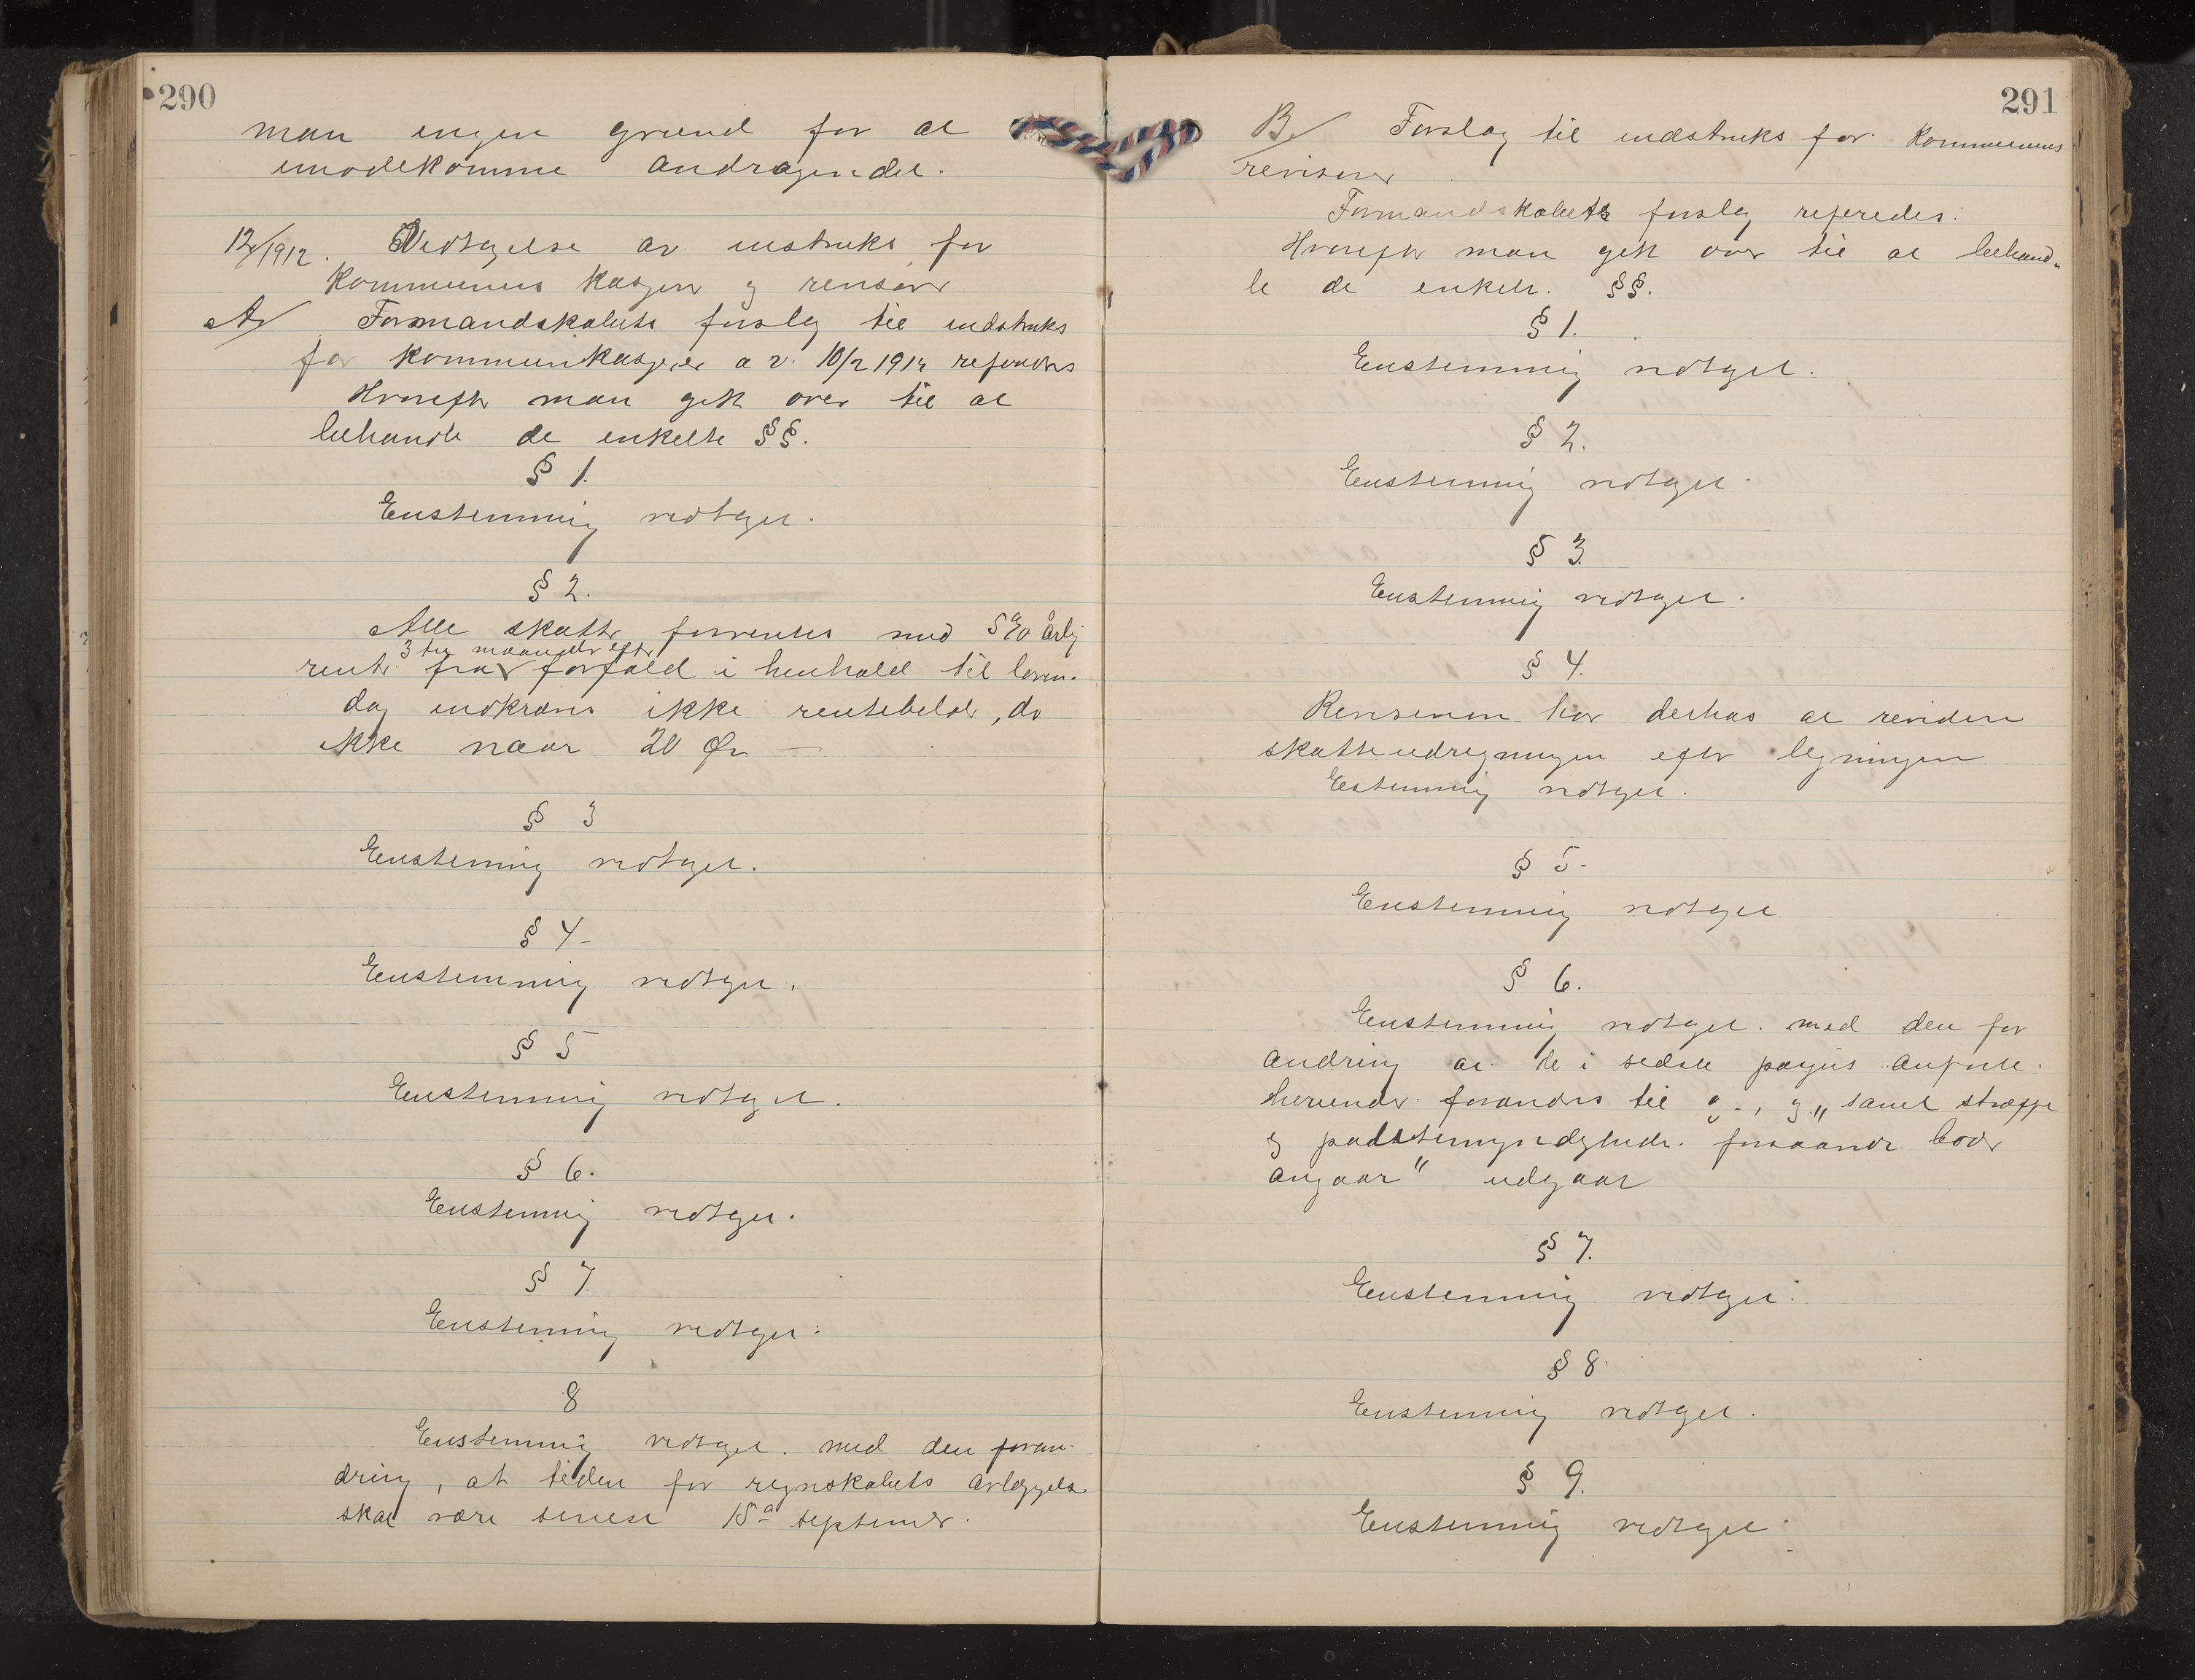 290
man ingen grund for at
imødekomme andragendet.
12/1912. Vedtagelse av instruks for
Kommunens Kasserer og revisor
A/ Formandskabets forslag til indstruks
for Kommunekasserer av 10/2 1912 refereredes
Hvorefter man gik over til at
behandle de enkelte §§.
§ 1.
Enstemmig vedtaget.
§ 2.
Alle skatter forrentes med 5% årlig
3 tre maaneder efter
rente fra forfald i henhold til loven.
dog indkræves ikke rentebeløb, de
ikke naar 20 Øre —
§ 3
Enstemmig vedtaget.
§ 4-
Enstemmig vedtaget.
§ 5
Enstemmig vedtaget.
§ 6.
Enstemmig vedtaget.
§ 7
Enstemmig vedtaget:
8
Enstemmig vedtaget. med den foran-
dring, at tiden for regnskabets avlæggelse
skal være senest 15de september.
291
B/ Forslag til indstruks for Kommunens
revisor
Formandskabets forslag referedes:
Hvorefter man gik over til at behand-
le de enkelte. §§.
§ 1.
Enstemmig vedtaget.
§ 2.
Enstemmig vedtaget.
§ 3.
Enstemmig vedtaget.
§ 4.
Revisoren har desuden at revidere
skatteudregningen efter ligningen
Estemmig vedtaget.
§ 5-
Enstemmig vedtaget
§ 6.
Enstemmig vedtaget. med den for
andring at de i sidste passus anførte
herunder forandres til og samt straffe
og politimyndighede. forsaavidt bøder
angaar" udgaar
§ 7.
Enstemmig vedtaget.
§ 8.
Enstemmig vedtaget.
§ 9.
Enstemmig vedtaget.